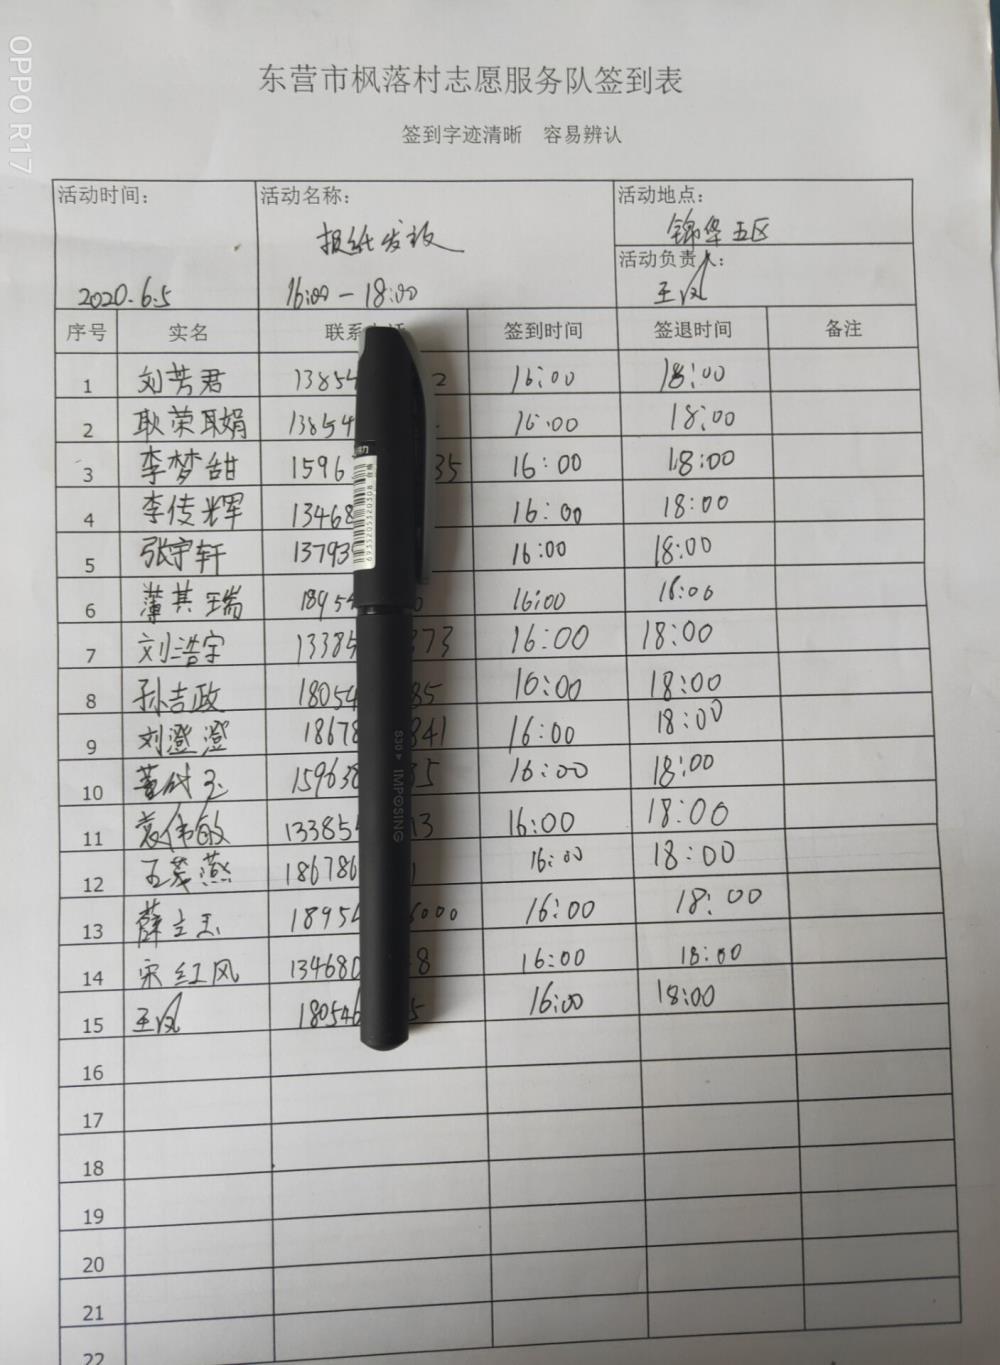 OPPO R17
东营市枫落村志愿服务队签到表
签到字迹清晰 容易辨认
活动时间: 活动名称: 活动地点:
报纸发放 锦华五区
活动负责人:
2020.6.5 16:00-18:00 王凤
序号 实名 联系 签到时间 签退时间 备注
1 刘芳君 13854 2 16:00 18:00
2 耿荣娟 13854 16:00 18:00
3 李梦甜 1596 35 16:00 18:00
4 李传辉 13468 16:00 18:00
5 张宇轩 13793 16:00 18:00
6 薄其瑞 18954 0 16:00 18:00
7 刘浩宇 13385 373 16:00 18:00
8 孙吉政 18054 85 16:00 18:00
9 刘澄澄 18678 841 16:00 18:00
10 159638 35 16:00 18:00
11 袁伟敏 133854 13 16:00 18:00
12 186786 1 16:00 18:00
13 薛立玉 18954 6000 16:00 18:00
14 宋红风 134680 8 16:00 18:00
15 王凤 180546 5 16:00 18:00
16
17
18
19
20
21
22
6935205320308
S30 IMPOSING